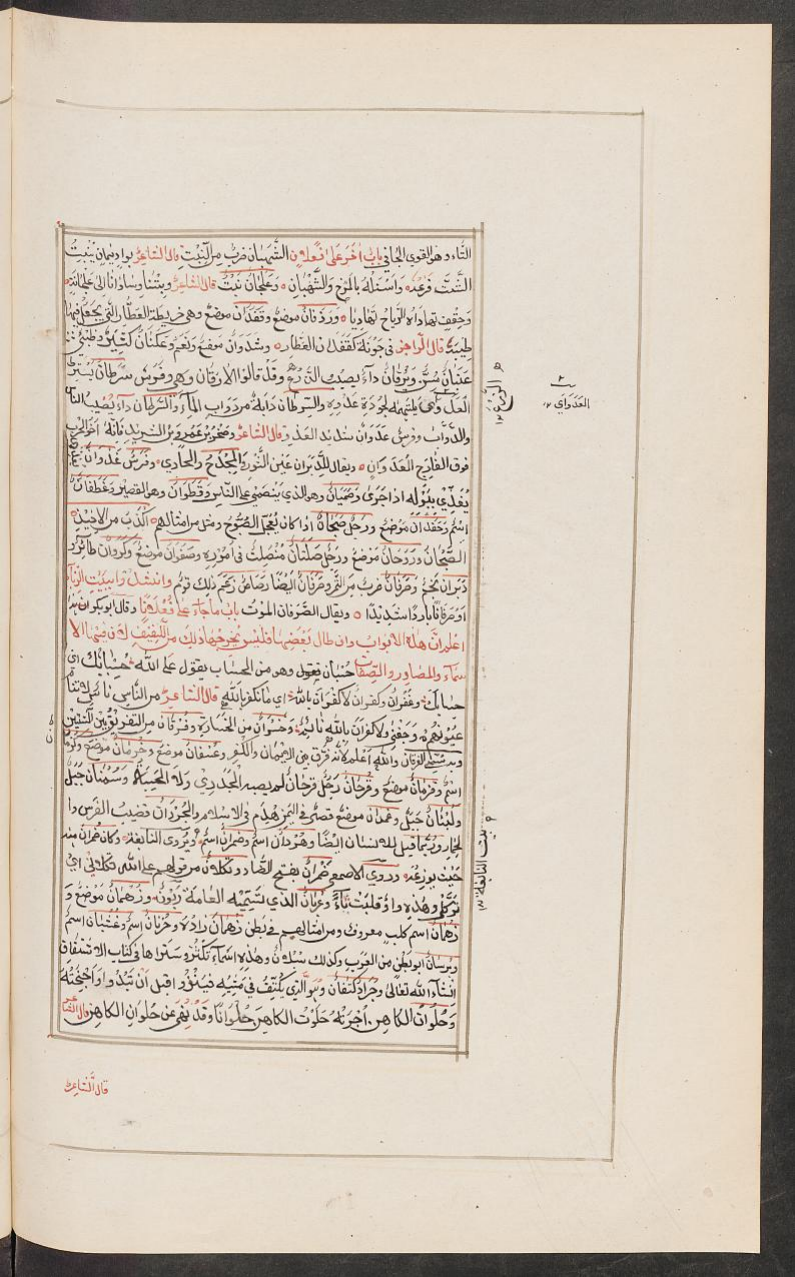 التاء وهو القوي الجافي باب آخر على فَعَلان الشَّبَهان ضرب من النبت قال الشاعر بواد يمان ينبت
الشث فرعه واسفله بالمرخ والشَّبَهان وعَلَجان نبت قال الشاعر وبتنا وسادانا الى علجانة
وحقف تهاداه الرياح تهاديا وورذان موضع وقَفَدان موضع وهي خريطة العطار التي يجعل فيها
طيبه قال الراجز في جونة كقفدان العطار وشدوان موضع
عنبان مسن ويَرَقان داء يصيب الزرع وقد قالوا الارقان وهي وفرس سرطان يسترط
العدو اي يلتهمه لجودة عدوه والسرطان دابة من دواب الماء والسرطان داء يصيب الناس
والدواب وفرس عدوان شديد العدو قال الشاعر وصخر بن عمرو بن الشريد فانه اخو الحرب
فوق القارح العدوان ويقال للدبران عين الثور والمِجدَح والحادي وفرس غذوان
يغذي ببوله اذا جرى وصَمَيان وهو الذي ينصمي على الناس وقطوان وهو القصير وغطفان
اسم وعقدان موضع ورجل صبحان اذا كان يعجل الصبوح ومثل من امثالهم اكذب من الاخيذ
الصبحان وروحان موضع ورجل صلتان منصلت في اموره وصفوان موضع وكروان طائر و
دبران نجم وصرفان ضرب من التمر وصرفان ايضا رصاص زعم ذلك قوم وانشدوا بيت الزباء
ام صرفانا باردا شديدا ويقال الصرفان الموت باب ما جاء على فُعْلان وقال ابو بكر ابن دريد
اعلم ان هذه الابواب وان طال بعضها فليس يخرجها ذلك من اللفيف لان فيها الا
سماء والمصادر والصفات حُسْبان وهو من الحساب يقول على الله حسبانك اي
حسابك وغفران وكفران لا كفران بالله اي ما نكفر بالله قال الشاعر من الناس ناس لا تنام
عيونهم وجفني ولا كفران بالله نائم وخسران من الخسارة وفرقان من التفريق بين الشيئين
وبه سمي الفرقان والله اعلم لانه فرق بين الايمان والكفر وعسفان موضع وخرمان موضع
اسم وقرمان موضع وقرحان رجل قرحان لم يصبه الجدري ولا الحصبة وسمنان جبل
ولبنان جبل وغمدان موضع قصر في اليمن هدم في الاسلام والجردان قضيب الفرس
الحمار وربما قيل للانسان ايضا
حيث يوزعه وروى الاصمعي ضمران بفتح الضاد وتكلان من قولهم على الله تكلاني اي
توكلي وهذه واو قلبت تاء وعربان الذي تسميه العامة ربون وزهمان موضع و
زهمان اسم كلب معروف ومن امثالهم في بطن زهمان زاده وحزنان اسم وغثيان اسم
وبرسان ابو بطن من العرب وكذلك وهذه اسماء تكثر وستراها في كتاب الاشتقاق
ان شاء الله تعالى وجراد كتفان وهو الذي يكتف في مشيه فينزو قبل ان تبدو اجنحته
وحلوان الكاهن اجرته حلوت الكاهن حلوانا وقد نهي عن حلوان الكاهن قال الشاعر
الزرع ١٢
العدواي ١٢
بيت النابغة ١٢
قال الشاعر